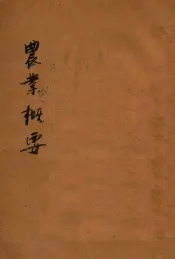 農業概要